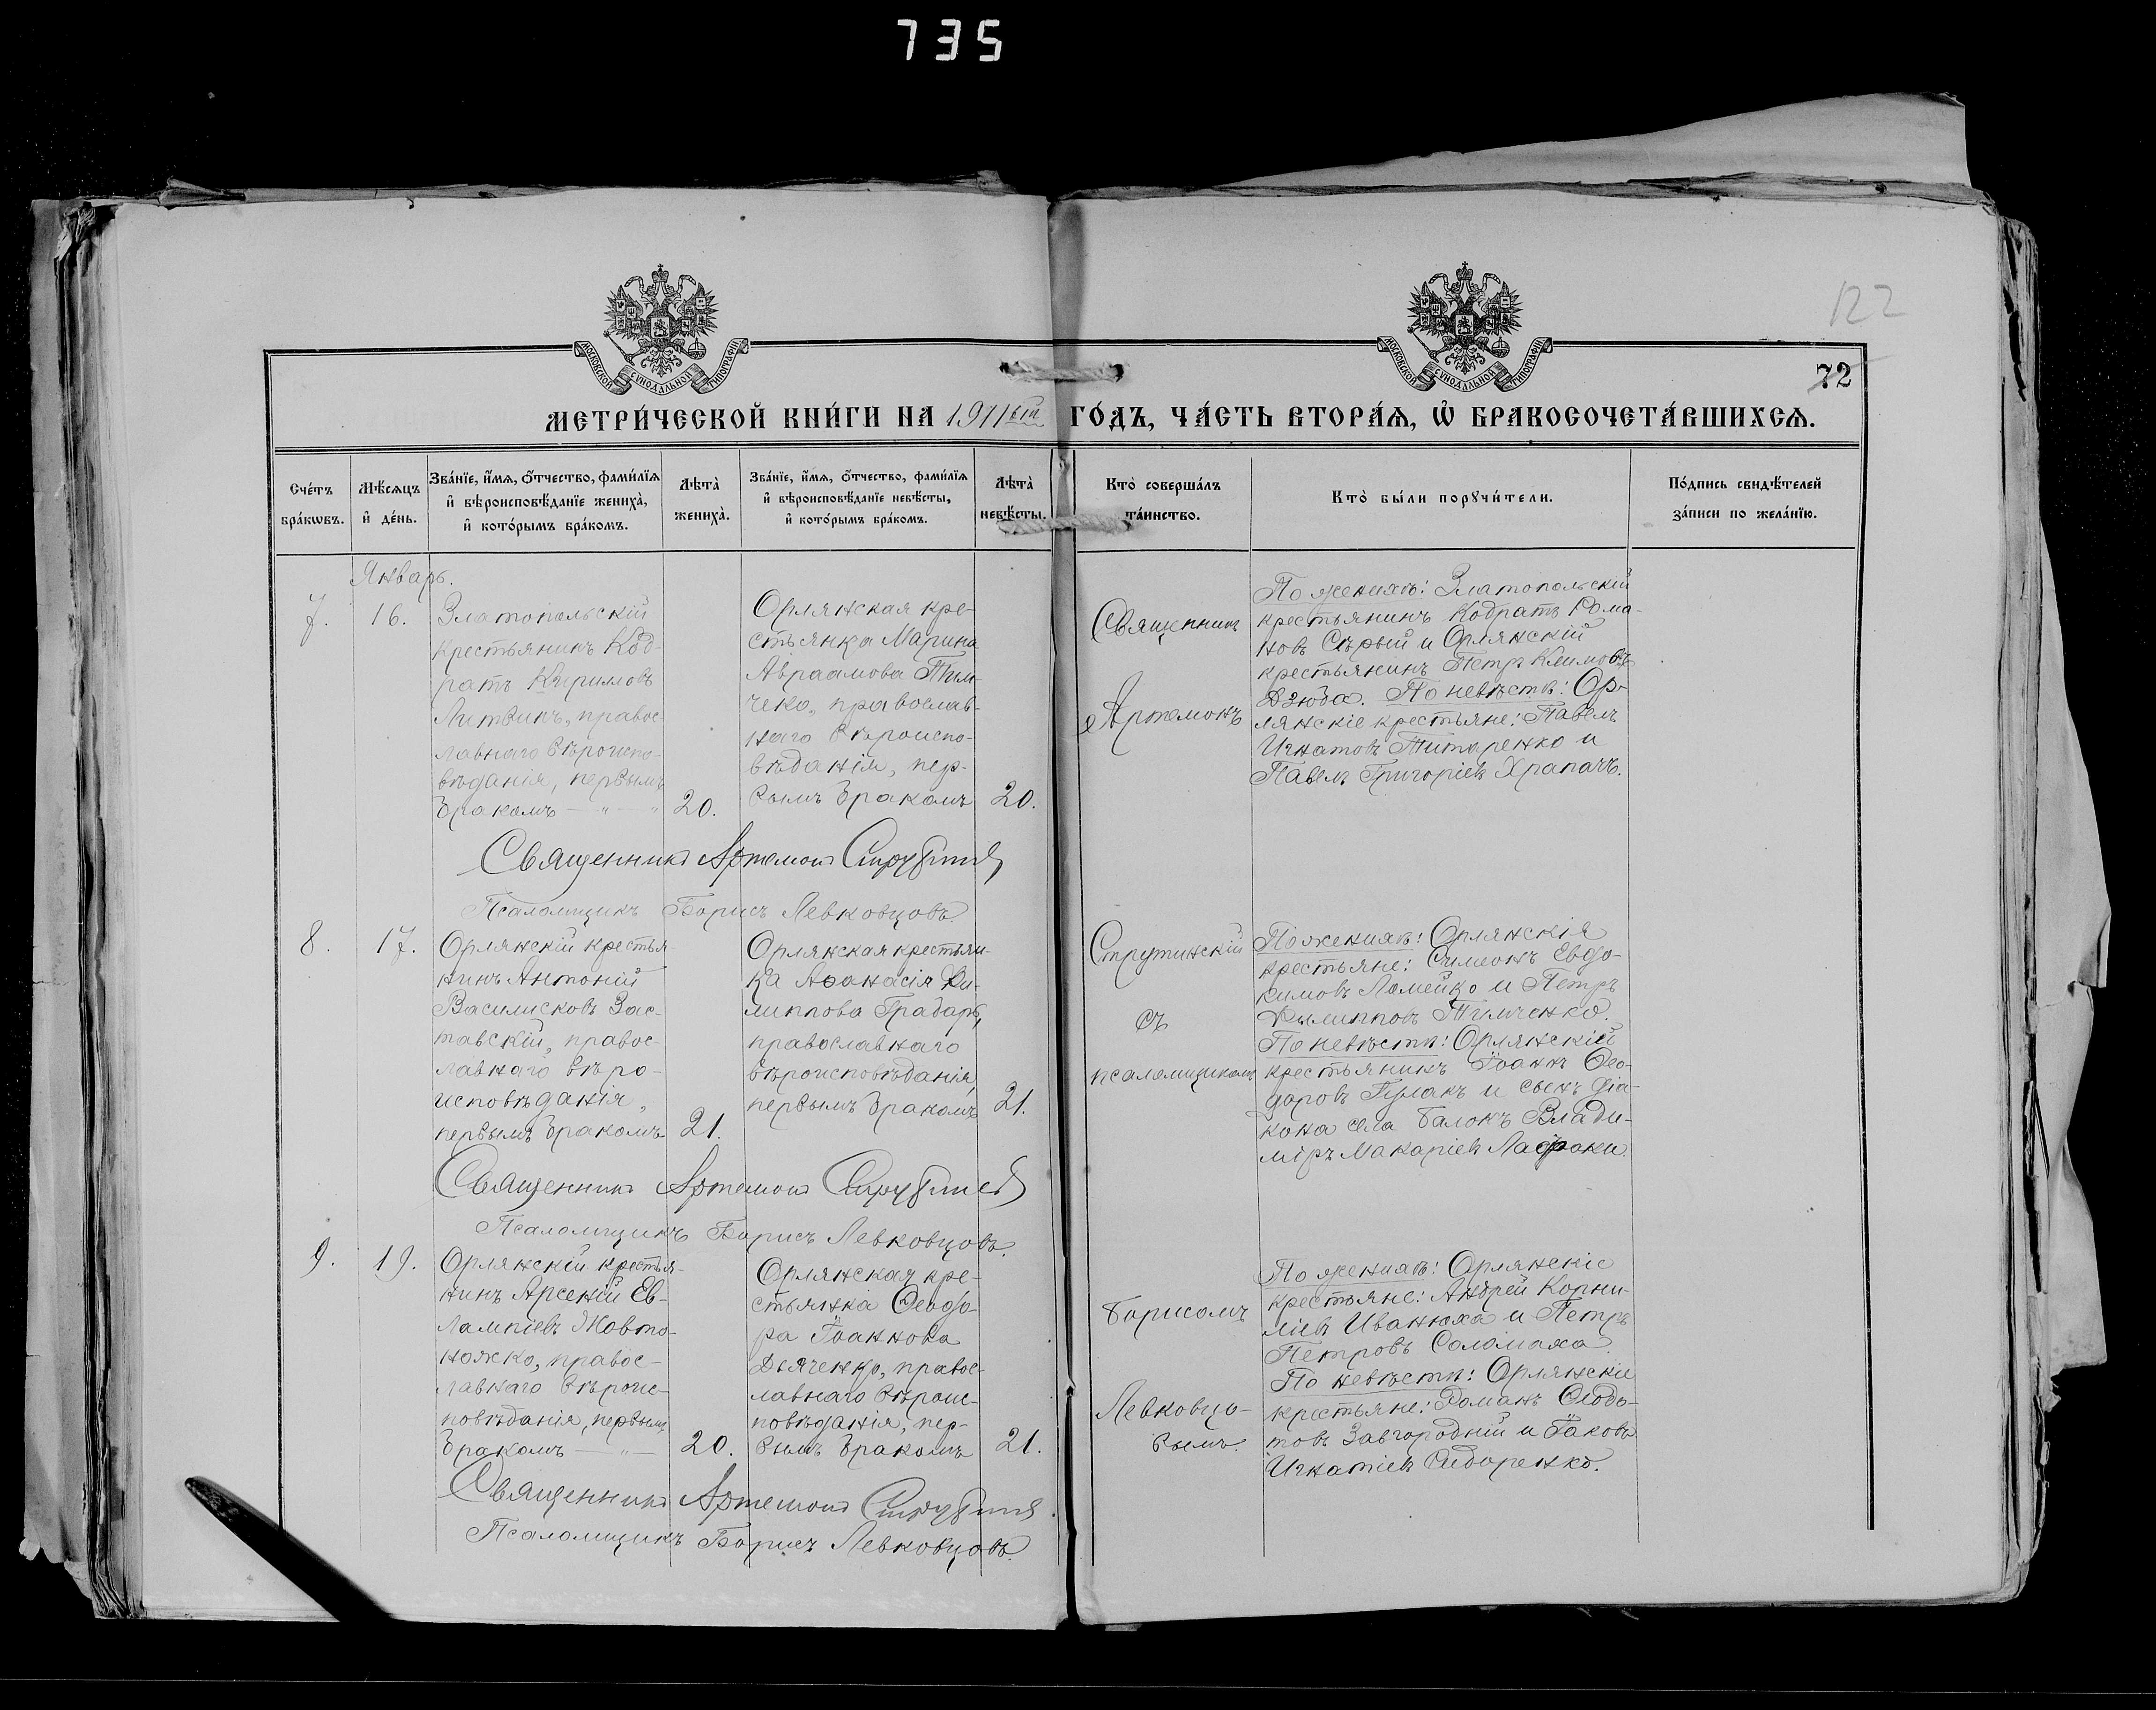 735
122
72
МОСКОВСКОЙ СѴНОДАЛЬНОЙ ТИПОГРАФІИ
МОСКОВСКОЙ СѴНОДАЛЬНОЙ ТИПОГРАФІИ
МЕТРИ́ЧЕСКОЙ КНИ́ГИ НА 1911ый ГО́ДЪ, ЧА́СТЬ ВТОРА́Я, Ѡ҆ БРАКОСОЧЕТА́ВШИХСЯ.
Сче́тъ
бра́кѡвъ.
Мѣ́сяцъ
и҆ де́нь.
Зва́нїе, и҆́мя, ѻ҆́тчество, фами́лїя
и҆ вѣроисповѣ́данїе жениха̀,
и҆ кото́рымъ бра́комъ.
Лѣта̀
жениха̀.
Зва́нїе, и҆́мя, ѻ҆́тчество, фами́лїя
и҆ вѣроисповѣ́данїе невѣ́сты,
и҆ кото́рымъ бра́комъ.
Лѣта̀
невѣ́сты.
Кто̀ соверша́лъ
та́инство.
Кто̀ бы́ли порꙋчи́тели.
По́дпись свидѣ́телей
за́писи по жела́нїю.
Январь.
7.
16.
Златопольскій
крестьянинъ Код-
ратъ Киримовъ
Литвинъ, правос-
лавнаго вѣроиспо-
вѣданія, первымъ
бракомъ — „ — „
20.
Орлянская кре-
стьянка Марина
Авраамова Тим-
чеко, православ-
наго вѣроиспо-
вѣданія, пер-
вымъ бракомъ
20.
Священникъ
Артемонъ
По женихѣ: Златопольскій
крестьянинъ Кодратъ Рома-
новъ Сѣрый и Орлянскій
крестьянинъ Петръ Климовъ
Дзюба. По невѣстѣ: Ор-
лянскіе крестьяне: Павелъ
Игнатовъ Титаренко и
Павелъ Григоріевъ Храпачъ.
Священникъ Артемонъ Струтинскій
Псаломщикъ Борисъ Левковцовъ.
8.
17.
Орлянскій крестья-
нинъ Антоній
Василисковъ Зас-
тавскій, правос-
лавнаго вѣро-
исповѣданія,
первымъ бракомъ
21.
Орлянская крестьян-
ка Аѳанасія Фи-
липпова Градарь,
православнаго
вѣроисповѣданія,
первымъ бракомъ
21.
Струтинскій
съ
псаломщикомъ
По женихѣ: Орлянскія
крестьяне: Симеонъ Евдо-
кимовъ Ломейко и Петръ
Филипповъ Тимченко.
По невѣстѣ: Орлянскій
крестьянинъ Іоаннъ Ѳео-
доровъ Гулакъ и сынъ діа-
кона села Балокъ Влади-
міръ Макаріевъ
Священникъ Артемонъ Струтинскій
Псаломщикъ Борисъ Левковцовъ.
9.
19.
Орлянскій крестья-
нинъ Арсеній Ев-
лампіевъ Жовто-
ножко, правос-
лавнаго вѣроис-
повѣданія, первымъ
бракомъ — „ —
20.
Орлянская кре-
стьянка Ѳеодо-
ра Іоаннова
Дьяченко, правос-
лавнаго вѣроис-
повѣданія, пер-
вымъ бракомъ
21.
Борисомъ
Левковцо-
вымъ.
По женихѣ: Орлянскіе
крестьяне: Андрей Корни-
ліевъ Иванюха и Петръ
Петровъ Соломаха.
По невѣстѣ: Орлянскіе
крестьяне: Романъ Ѳеодо-
товъ Завгородній и Іаковъ
Игнатіевъ Сидоренко.
Священникъ Артемонъ Струтинскій
Псаломщикъ Борисъ Левковцовъ.